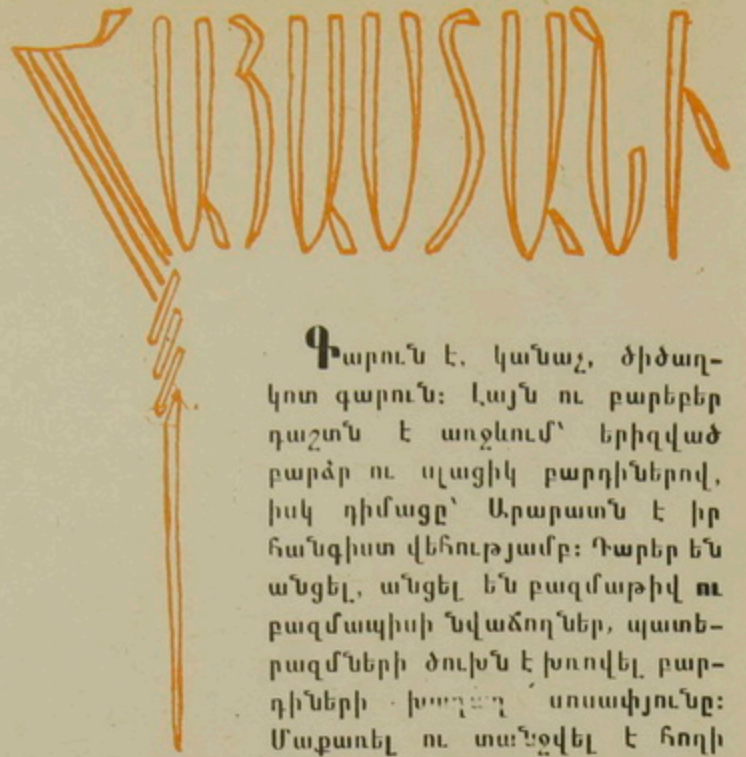 ՀԱՅԱՍՏԱՆԻ
Գարուն է, կանաչ, ծիծաղ-
կոտ գարուն։ Լայն ու բարեբեր
դաշտն է առջևում՝ երիզված
բարձր ու սլացիկ բարդիներով,
իսկ դիմացը՝ Արարատն է իր
հանգիստ վեհությամբ։ Դարեր են
անցել, անցել են բազմաթիվ ու
բազմապիսի նվաճողներ, պատե-
րազմների ծուխն է խռովել բար-
դիների խաղաղ սոսափյունը։
Մաքառել ու տանջվել է հողի